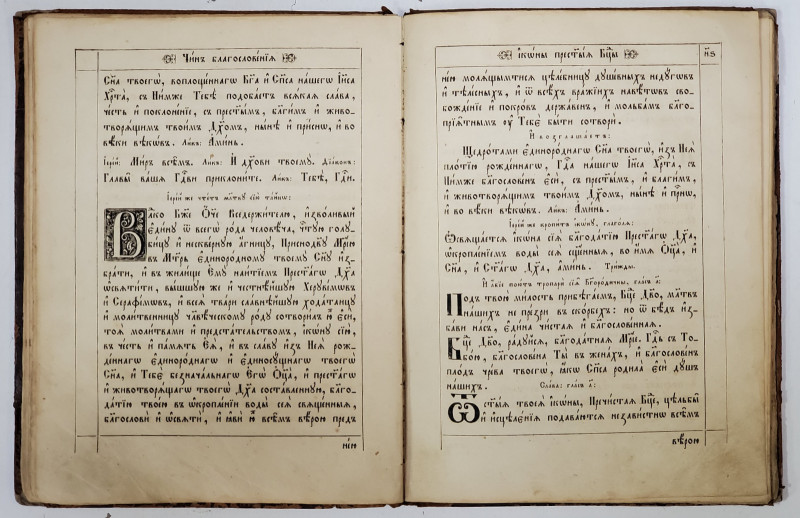 Чи́нъ благослове́нїѧ
Сн҃а твоегѡ̀, воплоще́ннагѡ Бг҃а и҆ Сп҃са на́шегѡ І҆и҃са
Хрⷭ҇та̀, съ Ни́мже Тебѣ̀ подоба́етъ всѧ́каѧ сла́ва,
че́сть и҆ поклоне́нїе, съ прест҃ы́мъ, бл҃ги́мъ и҆ живо-
творѧ́щимъ твои́мъ Дх҃омъ, ны́нѣ и҆ при́снѡ, и҆ во
вѣ́ки вѣкѡ́въ. Ли́къ: А҆ми́нь.
І҆ере́й: Ми́ръ всѣ́мъ. Ли́къ: И҆ дꙋ́хови твоемꙋ̀. Дїа́конъ:
Главы̑ ва́шѧ Гдⷭ҇ви приклони́те. Ли́къ: Тебѣ̀, Гдⷭ҇и.
І҆ере́й же чте́тъ мл҃твꙋ сїю̀ та́йнѡ:
Влⷣко Бж҃е Ѻ҆́ч҃е Вседержи́телю, и҆зво́ливый
є҆ди́нꙋ ѿ всегѡ̀ ро́да человѣ́ча, чⷭ҇тꙋю голꙋ-
би́цꙋ и҆ нескве́рнꙋю а҆́гницꙋ, Приснодв҃ꙋ Мр҃і́ю
въ Мт҃рь є҆диноро́дномꙋ твоемꙋ̀ Сн҃ꙋ и҆з-
бра́ти, и҆ въ жили́ще Є҆мꙋ̀ наи́тїемъ Прест҃а́гѡ Дх҃а
ѡ҆свѧти́ти, вы́шшꙋю же и҆ честнѣ́йшꙋю Херꙋві́мѡвъ
и҆ Серафі́мѡвъ, и҆ всеѧ̀ тва́ри сла́внѣйшꙋю хода́таицꙋ
и҆ моли́твенницꙋ чл҃вѣ́ческомꙋ ро́дꙋ сотвори́лъ ю҆̀ є҆сѝ,
тоѧ̀ моли́твами и҆ предста́тельствомъ, і҆кѡ́нꙋ сїю̀,
въ че́сть и҆ па́мѧть Є҆ѧ̀, и҆ въ сла́вꙋ и҆з̾ Неѧ̀ рож-
де́ннагѡ є҆диноро́днагѡ и҆ є҆диносꙋ́щнагѡ твоегѡ̀
Сн҃а, и҆ Тебє̀ безнача́льнагѡ Є҆гѡ̀ Ѻ҆ц҃а̀, и҆ прест҃а́гѡ
и҆ животворѧ́щагѡ твоегѡ̀ Дх҃а соста́вленнꙋю, благо-
да́тїю твое́ю въ ѡ҆кропле́нїи воды̀ сеѧ̀ свѧще́нныѧ,
благословѝ и҆ ѡ҆свѧтѝ, и҆ ꙗ҆вѝ ю҆̀ всѣ̑мъ вѣ́рою пред̾
не́ю
і҆кѡ́ны прест҃ы́ѧ Бц҃ы
н҃ѕ
не́ю молѧ́щымтисѧ цѣле́бницꙋ дꙋше́вныхъ недꙋ́гѡвъ
и҆ тѣле́сныхъ, и҆ ѿ всѣ́хъ вра́жїихъ навѣ́тѡвъ сво-
божде́нїе и҆ покро́въ держа́венъ, и҆ мольба́мъ благо-
прїѧ̑тнымъ ᲂу҆ Тебє̀ бы́ти сотворѝ.
И҆ возглаша́етъ:
Щедро́тами є҆диноро́днагѡ Сн҃а твоегѡ̀, и҆з̾ Неѧ̀
пло́тїю рожде́ннагѡ, Гдⷭ҇а на́шегѡ І҆и҃са Хрⷭ҇та̀, съ
Ни́мже благослове́нъ є҆сѝ, съ прест҃ы́мъ, и҆ благи́мъ,
и҆ животворѧ́щимъ твои́мъ Дх҃омъ, ны́нѣ и҆ при́снѡ,
и҆ во вѣ́ки вѣкѡ́въ. Ли́къ: А҆ми́нь.
І҆ере́й же кропи́тъ і҆кѡ́нꙋ, глаго́лѧ:
Ѡ҆свѧща́етсѧ і҆кѡ́на сїѧ̀ благода́тїю Прест҃а́гѡ Дх҃а,
ѡ҆кропле́нїемъ воды̀ сеѧ̀ сщ҃е́нныѧ, во и҆́мѧ Ѻ҆ц҃а̀, и҆
Сн҃а, и҆ Ст҃а́гѡ Дх҃а, а҆ми́нь. Три́жды.
И҆ а҆́бїе пою́тъ тропарѝ сїѧ̑ Бг҃оро́дичны, гла́съ д҃:
Под̾ твою̀ ми́лость прибѣга́емъ, Бц҃е Дв҃о, мл҃твъ
на́шихъ не пре́зри въ ско́рбехъ: но ѿ бѣ́дъ и҆з-
ба́ви на́съ, є҆ди́на чи́стаѧ и҆ благослове́ннаѧ.
Бц҃е Дв҃о, ра́дꙋйсѧ, благода́тнаѧ Мр҃і́е, Гдⷭ҇ь съ То-
бо́ю, благослове́на Ты̀ въ жена́хъ, и҆ благослове́нъ
пло́дъ чре́ва твоегѡ̀, ꙗ҆́кѡ Сп҃са родила̀ є҆сѝ дꙋ́шъ
на́шихъ. Сла́ва: гла́съ д҃:
Ѿ ст҃ы́ѧ твоеѧ̀ і҆кѡ́ны, Пречи́стаѧ Бц҃е, цѣльбы̑
и҆ и҆сцѣлє́нїѧ подава́ютсѧ незави́стнѡ всѣ̑мъ
вѣ́рою